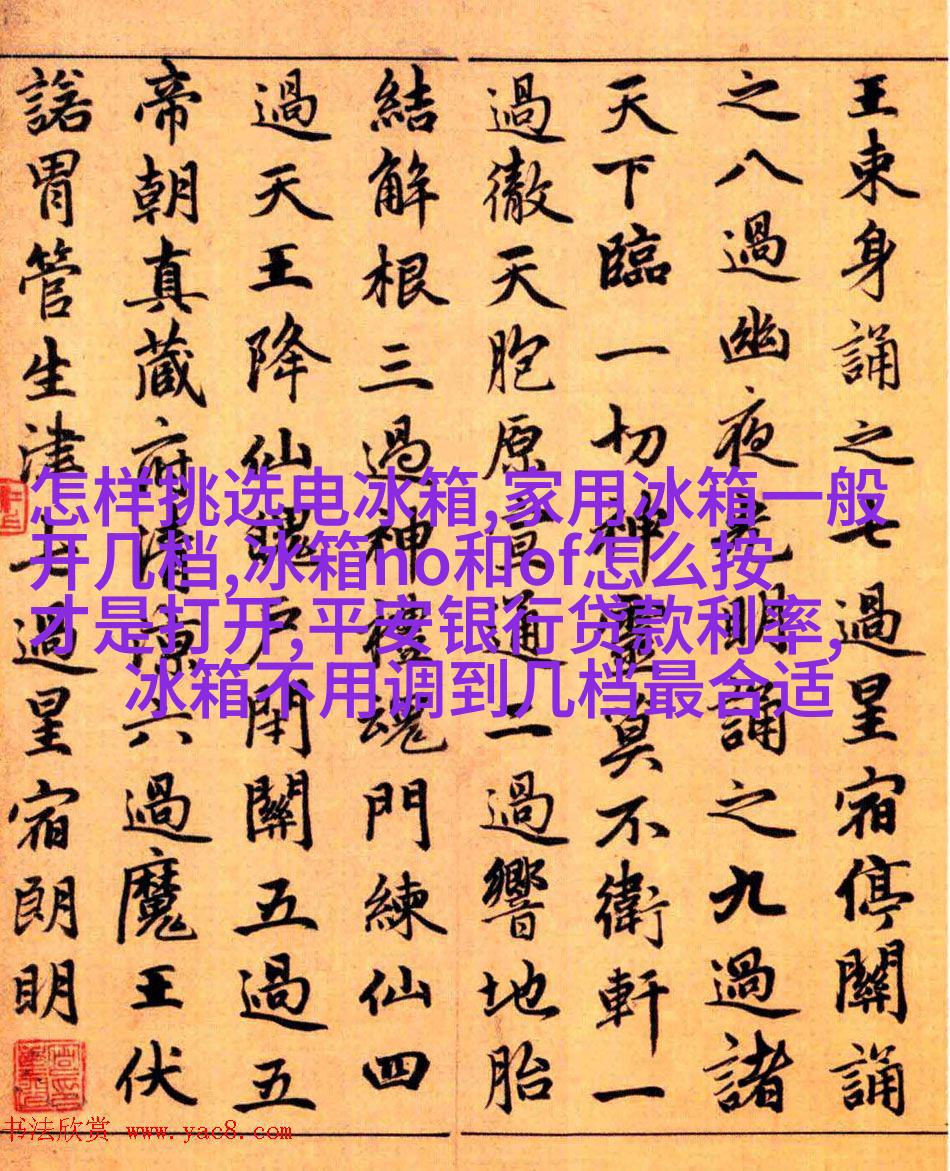 王東身誦之七過星宿停關誦
之八過幽夜光明誦之九過諸
天下臨一切神靈莫不衛軒一
過徹天胞原宣通二過響地胎
結解根三過神魂門練仙四
過天王降仙魂户關五過五
帝朝真蔵府清涼六過魔王伏
諾胃管生津七過星宿朗明
怎样挑选电冰箱,家用冰箱一般
开几档,冰箱no和of怎么按
才是打开,平安银行贷款利率,
冰箱不用调到几档最合适
书法欣赏 www.yac8.com